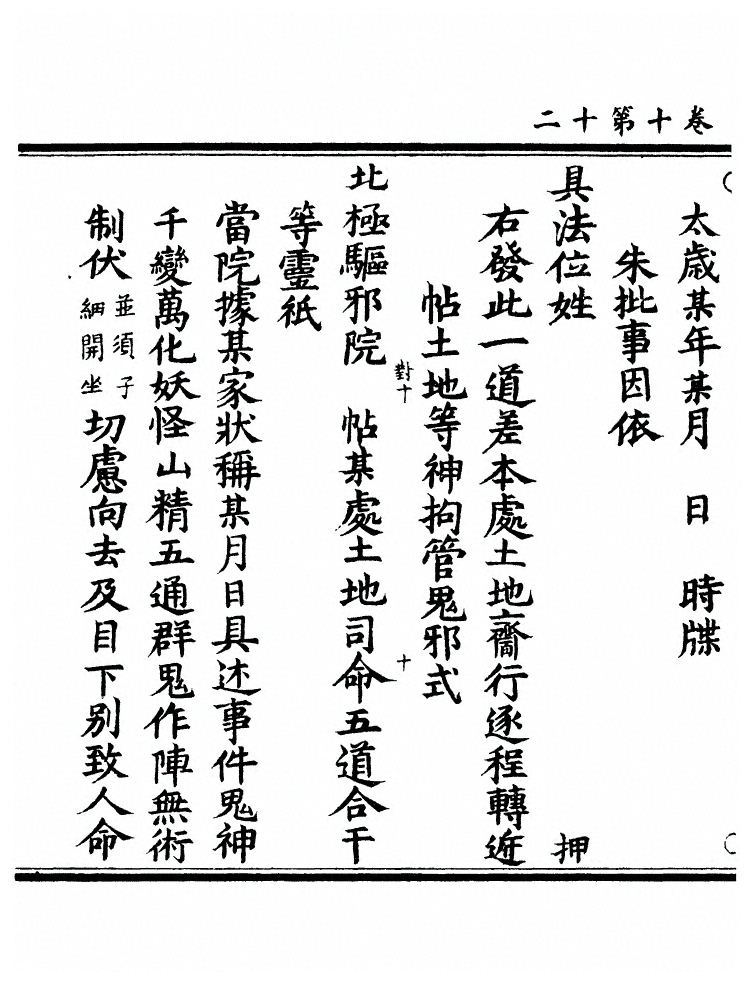 卷十第十二
太歲某年某月 日 時牒
朱批事因依
具法位姓 押
右發此一道差本處土地齎行逐程轉近
帖土地等神拘管鬼邪式
對十
十
北極驅邪院 帖某處土地司命五道合干
等靈祇
當院據某家狀稱某月日具述事件鬼神
千變萬化妖怪山精五通群鬼作陣無術
制伏並須子細開坐切慮向去及目下別致人命